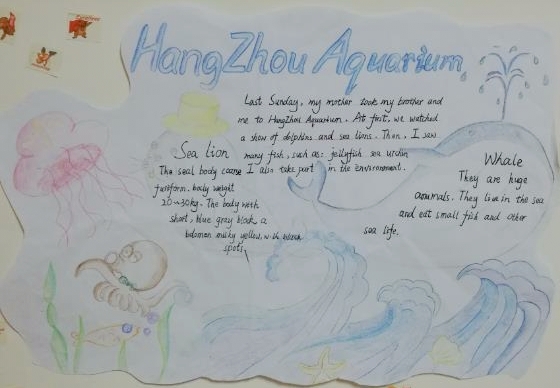 HangZhou Aquarium
Last Sunday, my mother took my brother and
me to HangZhou Aquarium. At first, we watched
a show of dolphins and sea lions. Then, I saw
many fish, such as: jellyfish sea urchin
I also take part in the environment.
Sea lion
The seal body came
fusiform. body weight
20~30kg. The body with
short, blue gray black a
bdomen milky yellow, with
spots.
Whale
They are huge
animals. They live in the sea
and eat small fish and other
sea life.